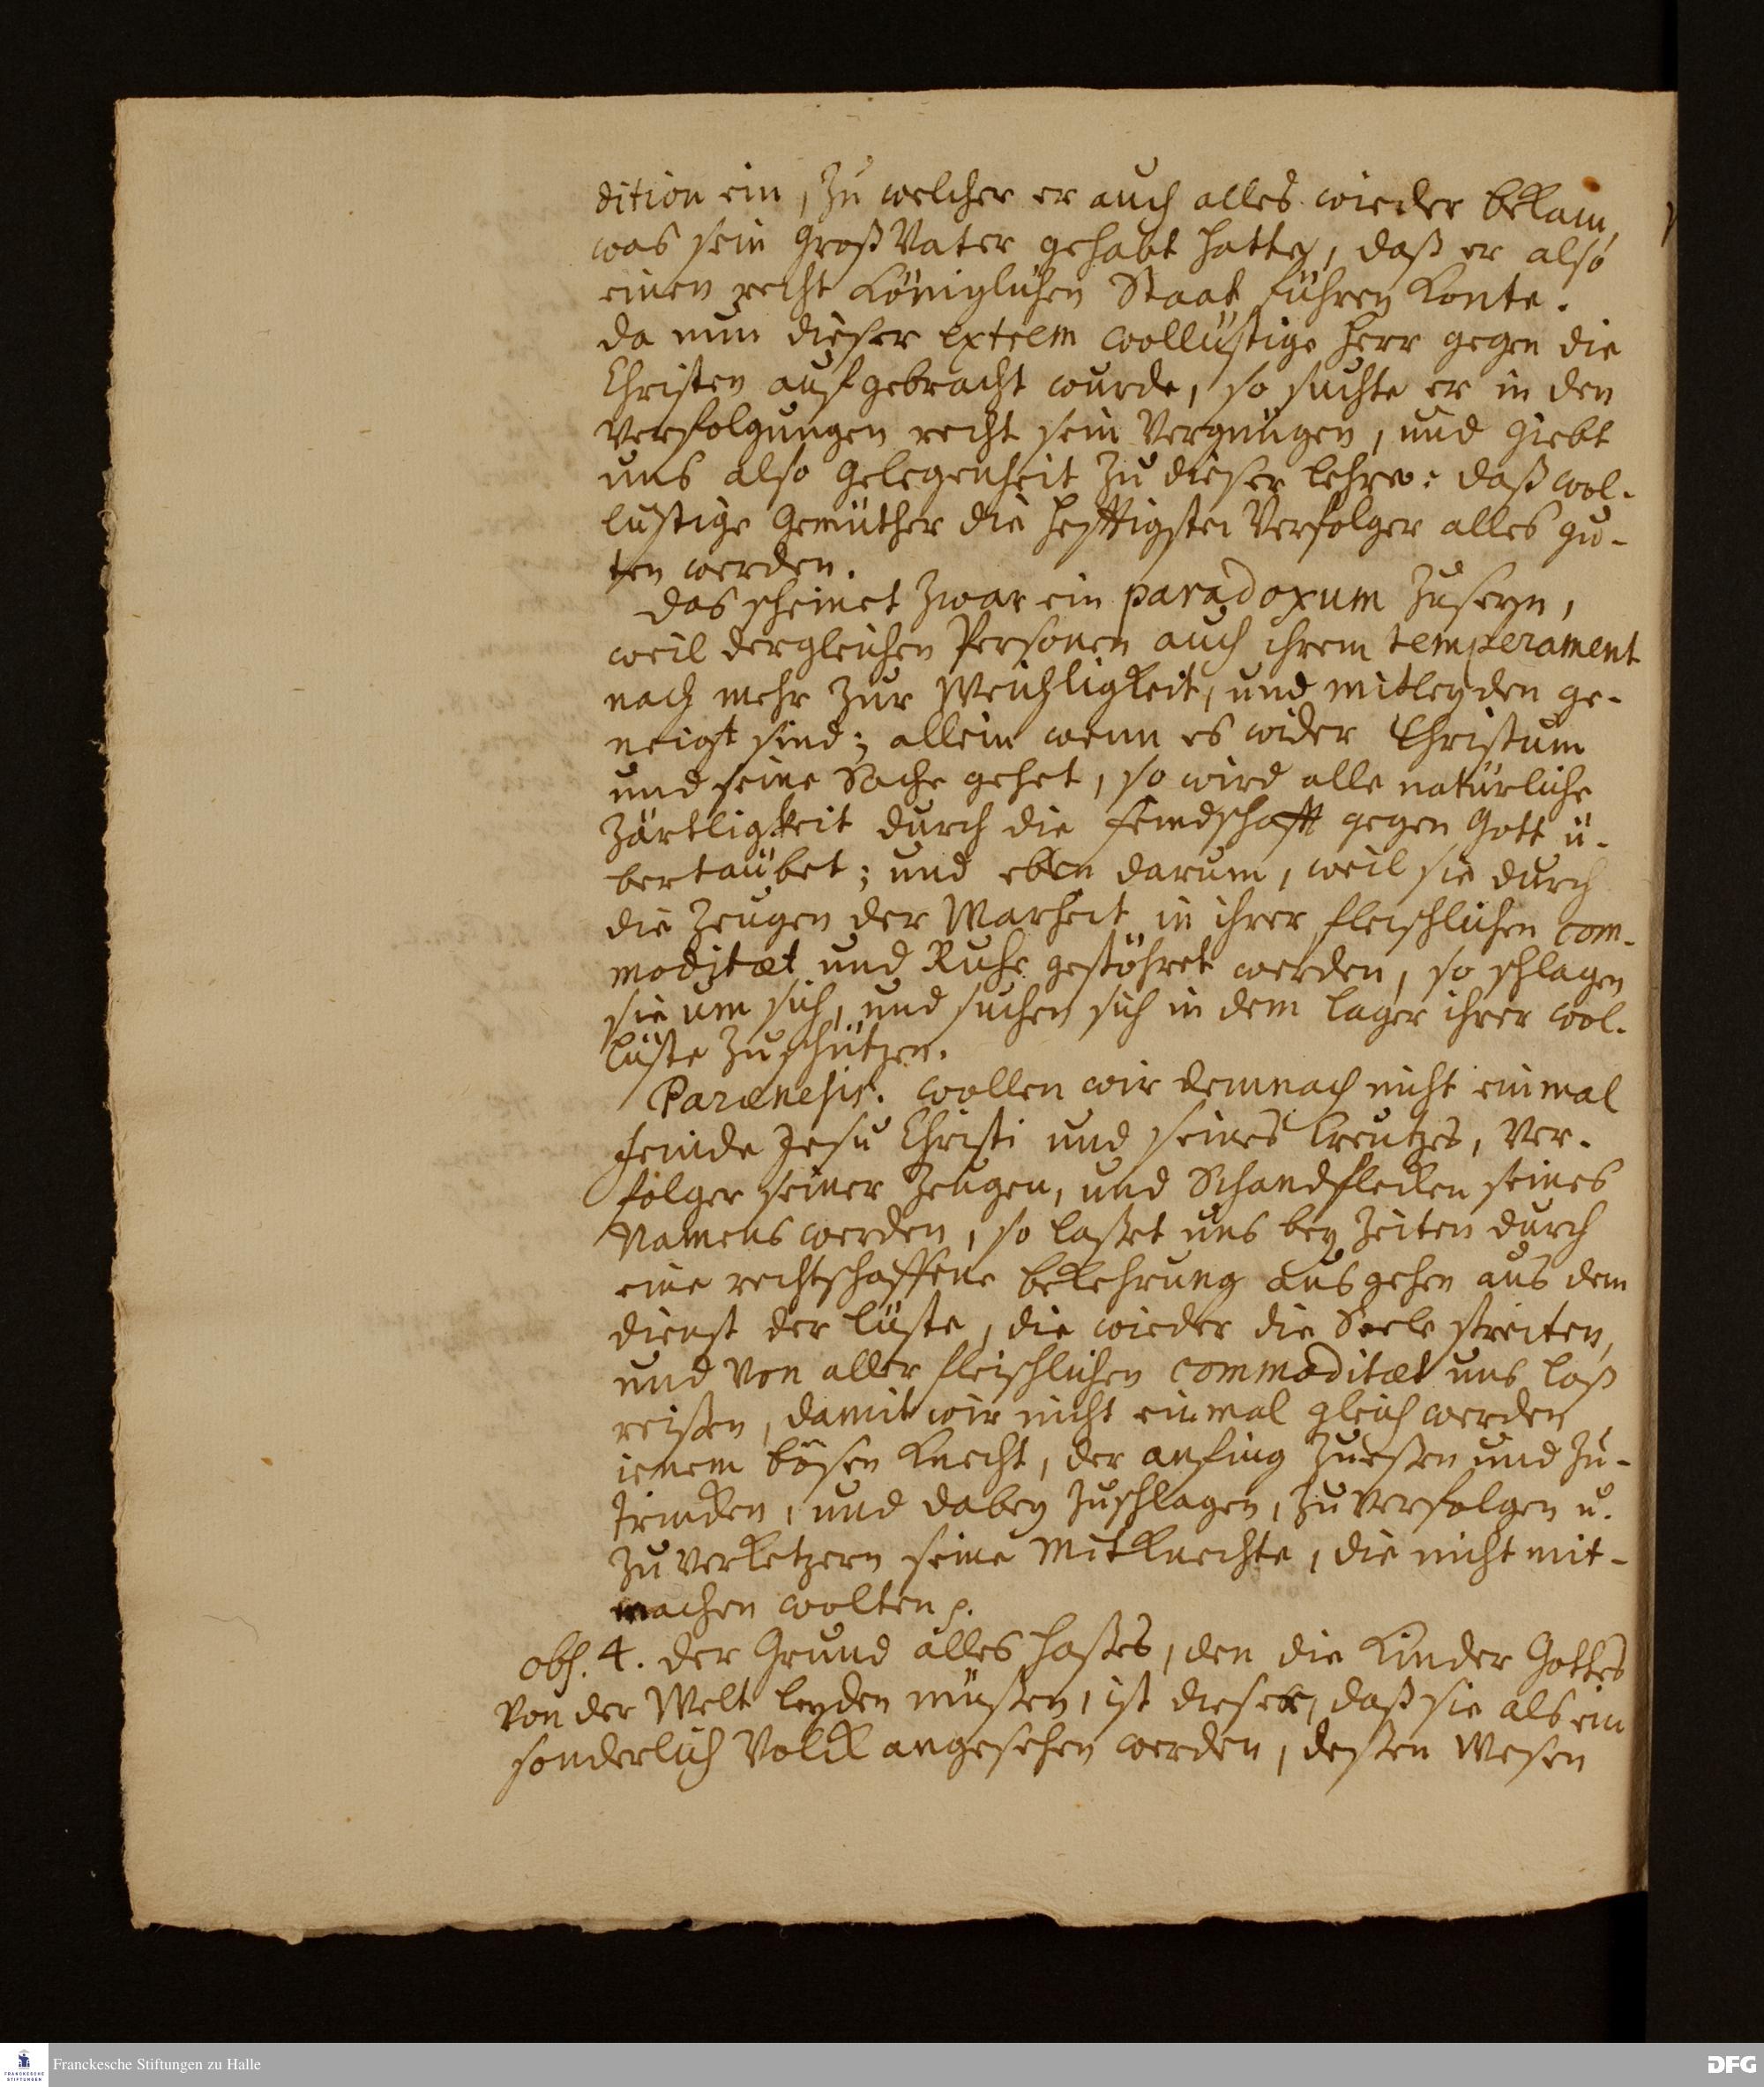 dition ein, zu welcher er auch alles wieder bekam,
was sein GroßVater gehabt hatte, daß er also
einen recht Königlichen Staat führen konte.
da nun dieser extrem wollüstige Herr gegen die
Christen aufgebracht wurde, so suchte er in den
Verfolgungen recht sein Vergnügen, und giebt
uns also Gelegenheit zu dieser Lehre: daß wol-
lüstige Gemüther die hefftigsten Verfolger alles gu-
ten werden.
Das scheinet zwar ein paradoxum zuseyn,
weil dergleichen Personen auch ihrem temperament
nach mehr zur Weichligkeit, und mitleyden ge-
neigt sind; allein wenn es wider Christum
und seine Sache gehet, so wird alle natürliche
Zärtligkeit durch die Feindschafft gegen Gott ü-
bertäubet; und eben darum, weil sie durch
die Zeugen der Warheit in ihrer fleischlichen com-
moditæt und Ruhe gestöhret werden, so schlagen
sie um sich, und suchen sich in dem Lager ihrer Wol-
lüste zuschützen.
Parænesis. Wollen wir demnach nicht einmal
Feinde Jesu Christi und seines Creutzes, Ver-
folger seiner Zeugen, und Schandflecken seines
Namens werden, so laßet uns bey Zeiten durch
eine rechtschaffene bekehrung ausgehen aus dem
dienst der Lüste, die wieder die Seele streiten,
und von aller fleischlichen commoditæt uns loß
reißen, damit wir nicht einmal gleich werden
ienem bösen Knecht, der anfing zueßen und zu-
trincken, und dabey zuschlagen, zuverfolgen u.
zuverketzern seine Mitknechte, die nicht mit-
machen wolten p.
Obs. 4. Der Grund alles Haßes, den die Kinder Gottes
von der Welt leyden müßen, ist dieser, daß sie als ein
sonderlich Volck angesehen werden, deßen Wesen
Franckesche Stiftungen zu Halle
FRANCKESCHE
STIFTUNGEN
DFG